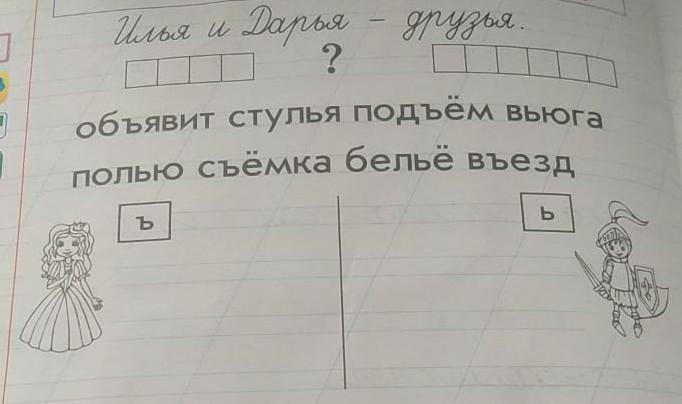 Илья и Дарья – друзья.
?
объявит стулья подъём вьюга
полью съёмка бельё въезд
ъ ь